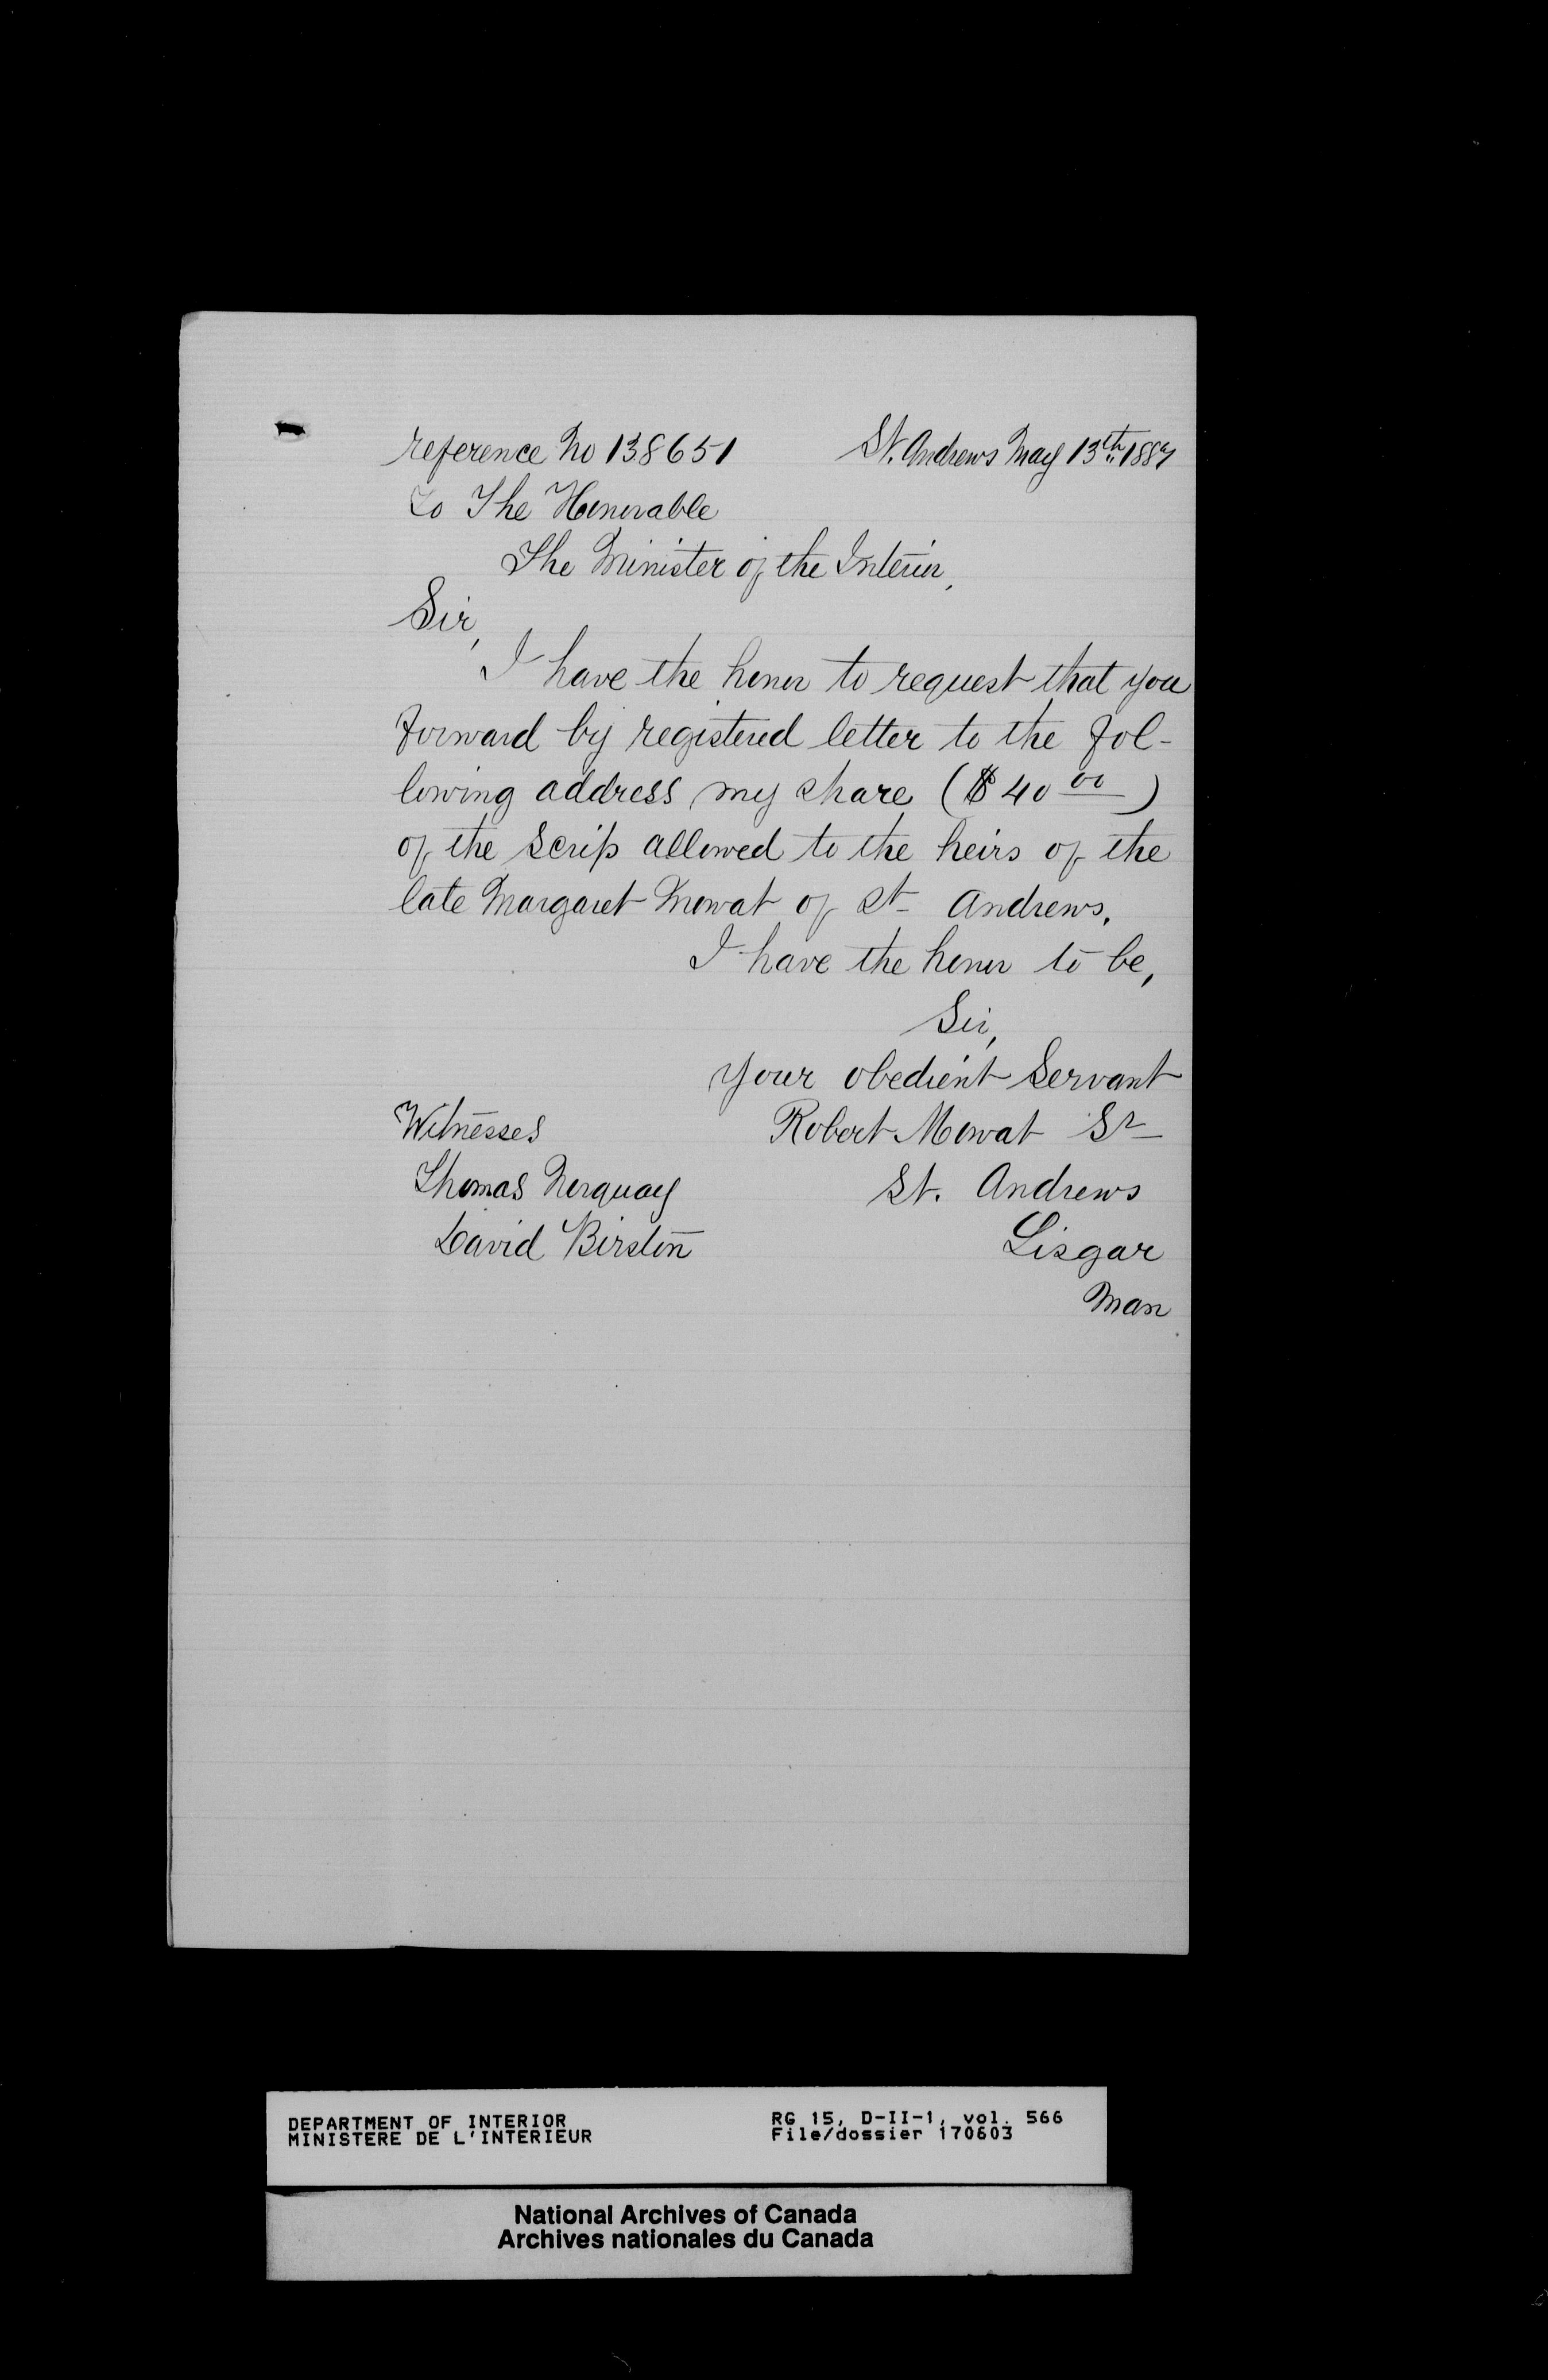 reference No 138651 St. Andrews May 13th 1887
To The Honorable
The Minister of the Interior,
Sir,
I have the honor to request that you
forward by registered letter to the fol-
lowing address my share ($40 00)
of the scrip allowed to the heirs of the
late Margaret Mowat of St Andrews.
I have the honor to be,
Sir,
your obedient Servant
Witnesses Robert Mowat Sr
Thomas Norquay St. Andrews
David Birston Lisgar
Man
DEPARTMENT OF INTERIOR RG 15, D-II-1, vol. 566
MINISTERE DE L'INTERIEUR File/dossier 170603
National Archives of Canada
Archives nationales du Canada